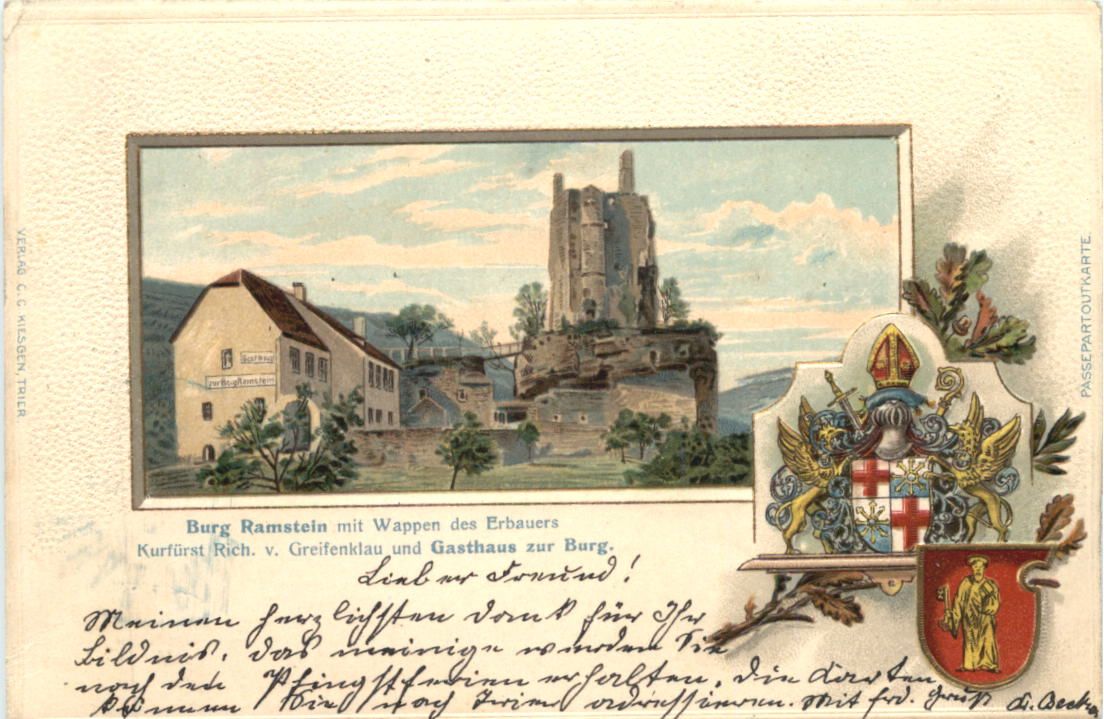 VERLAG C. C. KIESGEN, TRIER.
PASSEPARTOUTKARTE.
Gasthaus
zur Burg Ramstein
Burg Ramstein mit Wappen des Erbauers
Kurfürst Rich. v. Greifenklau und Gasthaus zur Burg.
Lieber Freund!
Meinen herzlichsten Dank für Ihr
Bildnis. Das meinige werden Sie
nach den Pfingstferien erhalten. Die Karten
können Sie nach Trier adressieren. Mit frd. Gruß